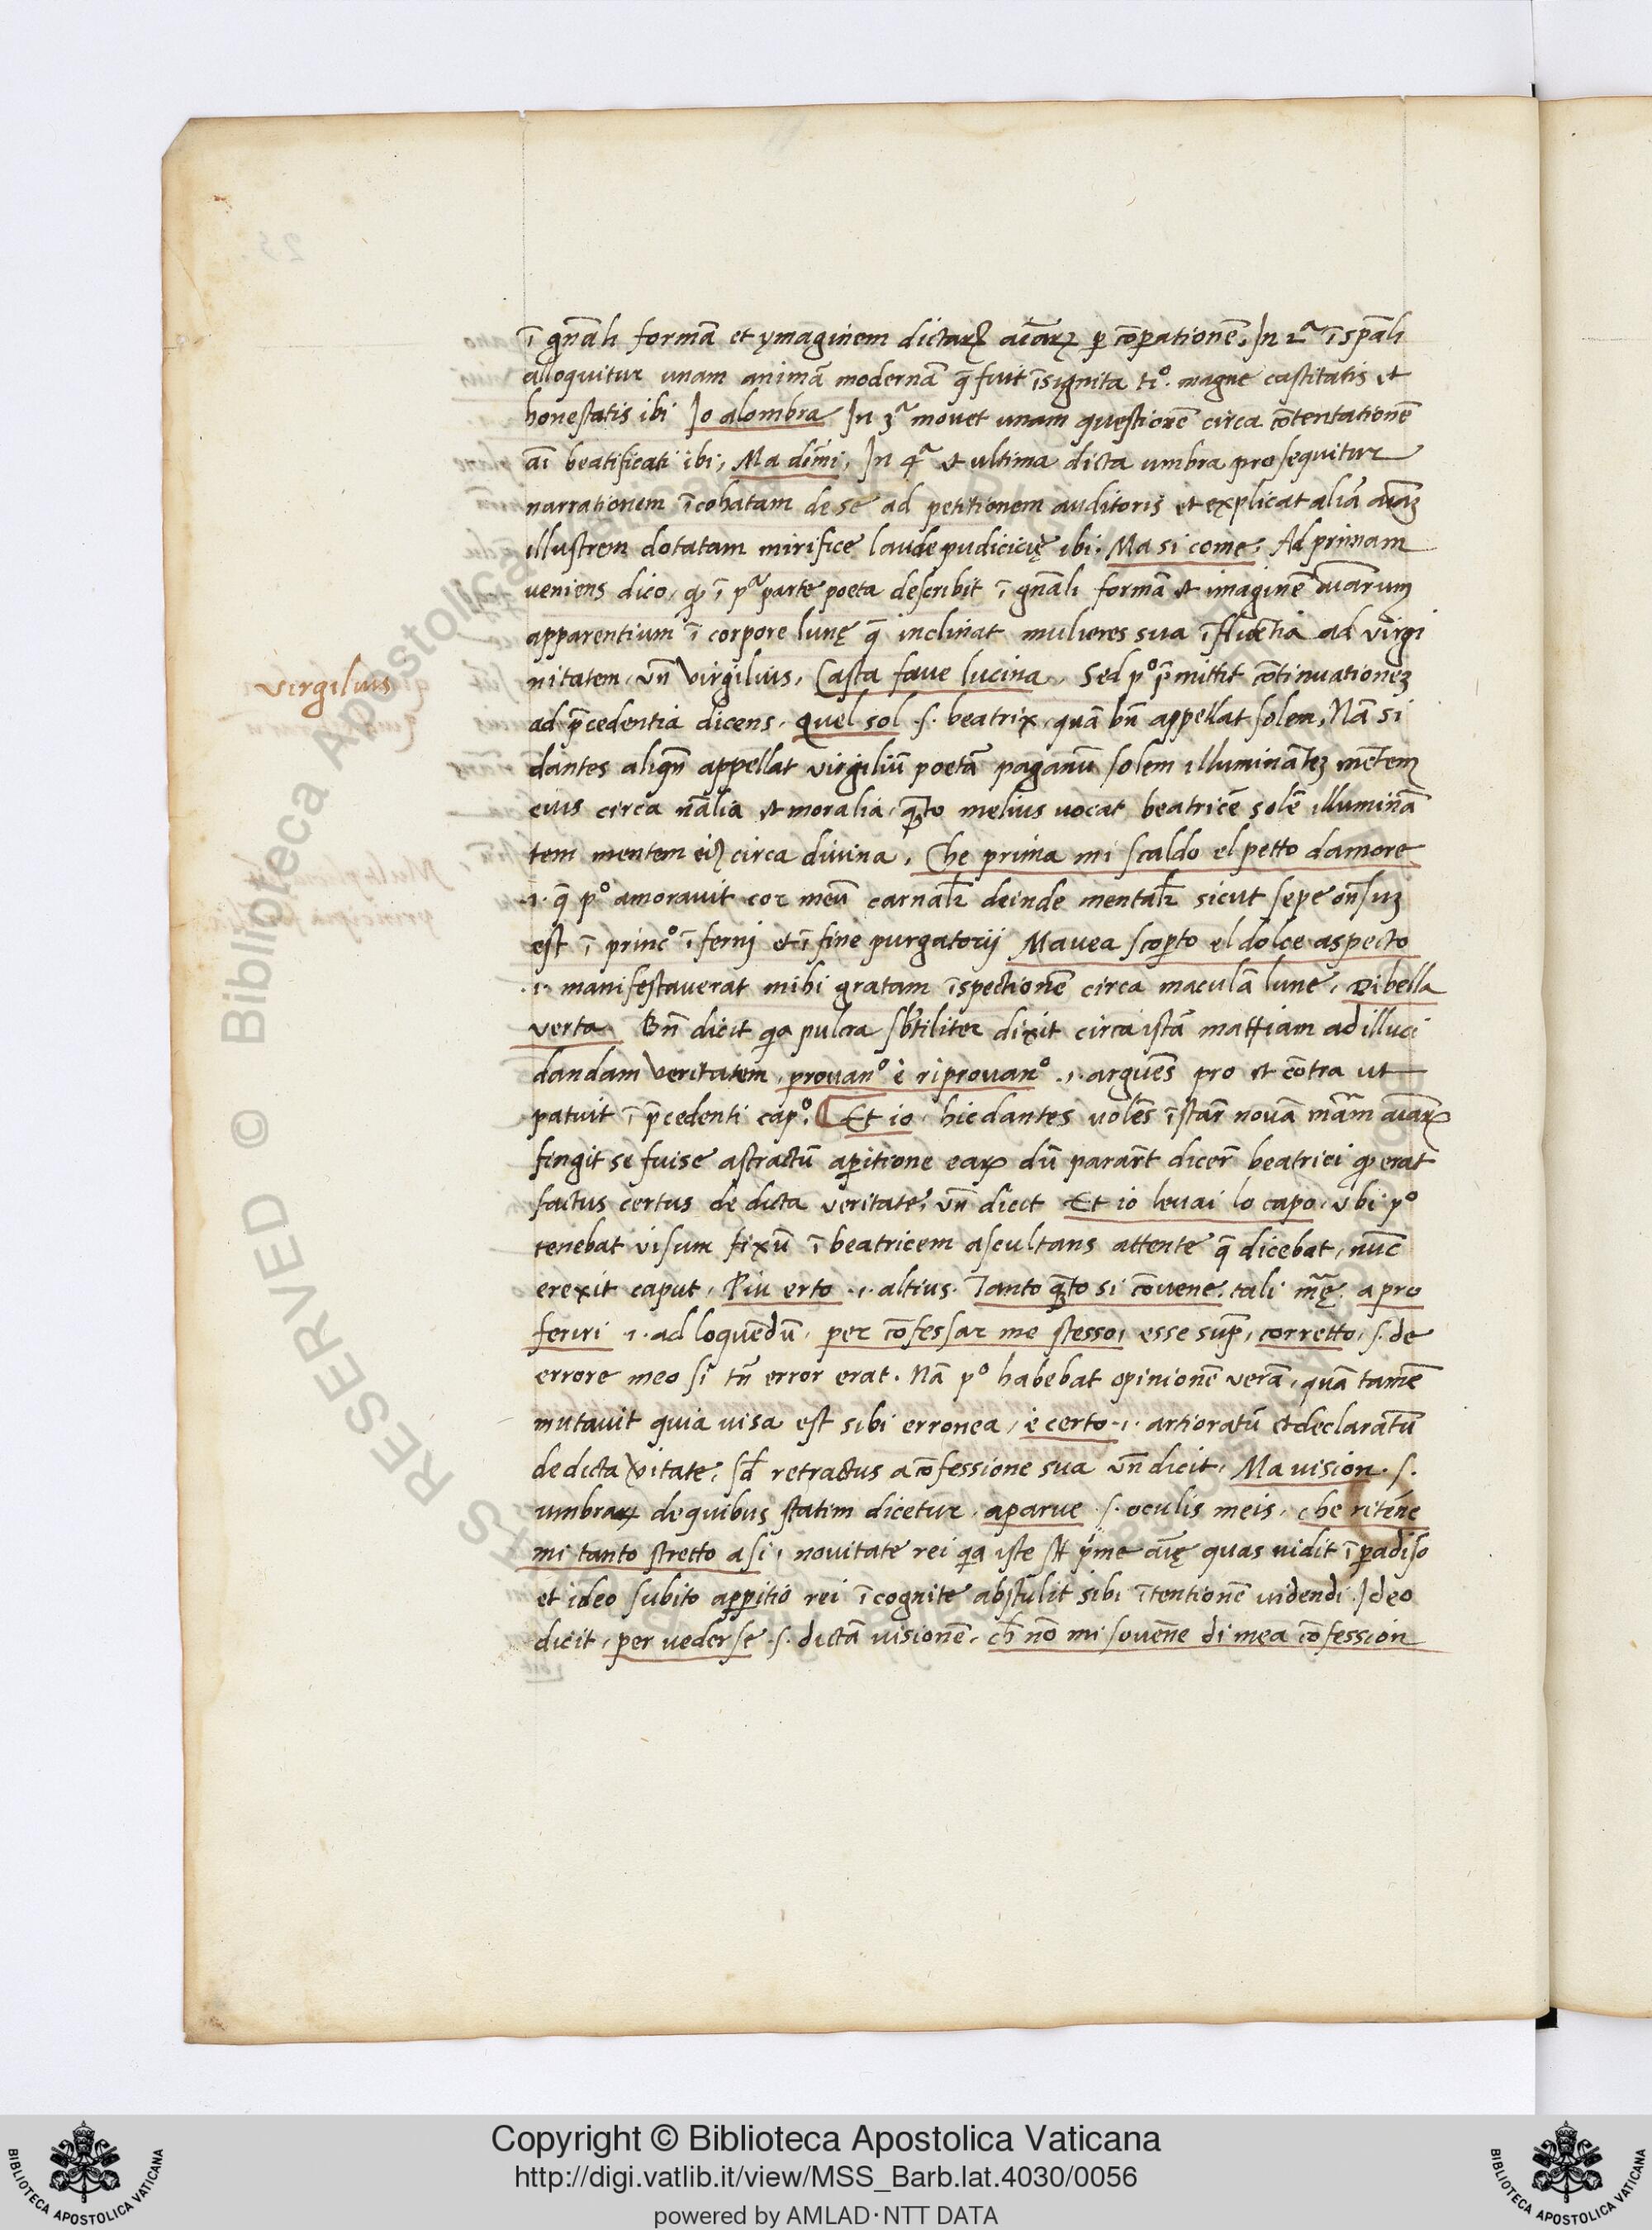 ī gn̄ali formā et ymaginem dictaꝝ aīaꝝ ꝑ cōꝑationē, In 2ᵃ ī spāli
alloquitur unam animā modernā q̄ fuit īsignita tiº. magne castitatis et
honestatis ibi Io alombra In 3ᵃ mouet unam questionē circa cōtentationē
aī beatificati ibi, Ma dimi, In 4ᵃ et ultima dicta umbra prosequitur
narrationem īcohatam de se ad petitionem auditoris et explicat aliā aīaꝫ
illustrem dotatam mirifice laude pudicicię ibi. Ma si come, Ad primam
veniens dico, ꝙ ī pᵃ parte poeta describit ī gn̄ali formā et imaginē aīarum
apparentium ī corpore lunę q̄ inclinat mulieres sua īfluētia ad virgi
nitatem, vn̄ Virgilius, Casta faue lucina, Sed pº p̄mittit cōtinuationeꝫ
virgilius
ad p̄cedentia dicens, Quel sol .s. beatrix, quā bn̄ appellat solem, Nā si
dantes aliqn̄ appellat virgiliū poetā paganū solem illumināteꝫ mētem
eius circa nālia et moralia, qᷓto melius uocat beatricē solē illuminā
tem mentem eiꝰ circa diuina, Che prima mi scaldo el petto damore
.i. q̄ pº amorauit cor meū carnalr̄ deinde mentalr̄ sicut sepe oñsuꝫ
est ī princº īfernj et ī fine purgatorij Mauea scoꝑto el dolce aspecto
.i. manifestauerat mihi gratam īspectionē circa maculā lune, Di bella
verta Bn̄ dicit qa pulcra sbtiliter dixit circa istā mat̄iam ad illuci
dandam Veritatem, prouanº e riprouanº .i. arguēs pro et cōtra ut
patuit ī p̄cedenti capº. Et io, hic dantes uolēs īstar̄ nouā mām aīaꝝ
fingit se fuise astractū aꝑitione eaꝝ dū parar̄t dicer̄ beatrici ꝙ erat
factus certus de dicta veritate, vn̄ dicit Et io leuai lo capo, vbi pº
tenebat visum fixū ī beatricem ascultans attente q̄ dicebat, nūc
erexit caput, Piu erto .i. altius. Tanto qᷓto si cōuene, tali mē̄. a pro
feriri .i. ad loquēdū, per cōfessar me stesso, esse sup̄, corretto, .s. de
errore meo si tn̄ error erat. Nā pº habebat opinionē verā, quā tamē
mutauit quia uisa est sibi erronea, e certo .i. artioratū et declaratū
de dicta Vitate, sꝺ retractus a cōfessione sua vn̄ dicit, Ma uision .s.
umbraꝝ de quibus statim dicetur, aparue .s. oculis meis, che ritēne
mi tanto stretto a si, nouitate rei qa iste st̄ pime aīę quas uidit ī ꝑadiso
et ideo subito apꝑitio rei īcognite abstulit sibi ītentionē uidendi. Ideo
dicit, per uederse .s. dictā visionē, ch̄ nō mi souēne di mea cōfession
Copyright © Biblioteca Apostolica Vaticana
http://digi.vatlib.it/view/MSS_Barb.lat.4030/0056
powered by AMLAD·NTT DATA